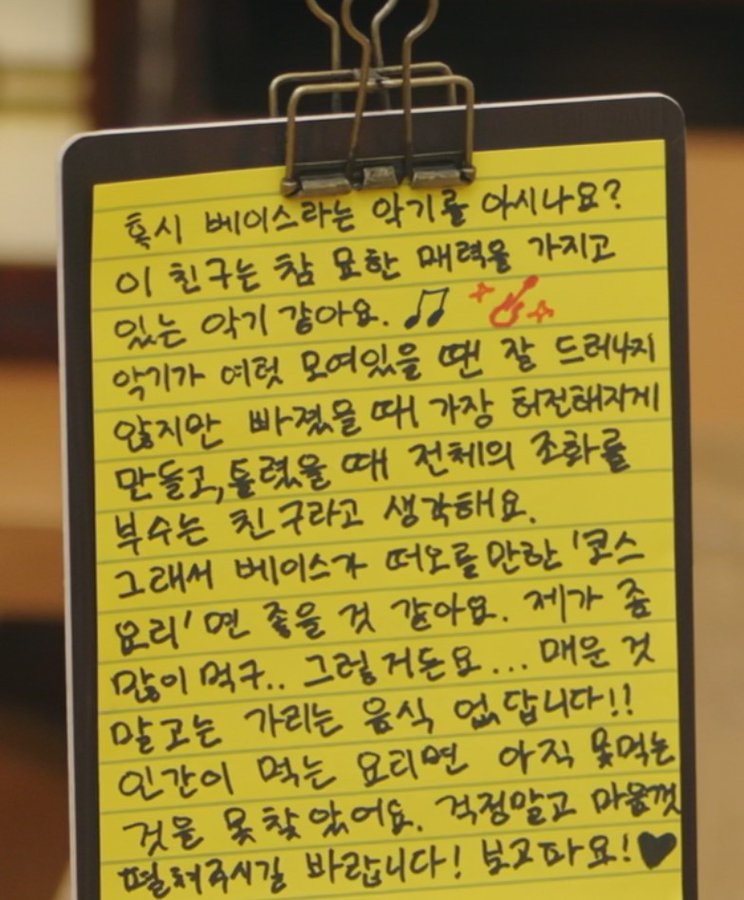 혹시 베이스라는 악기를 아시나요?
이 친구는 참 묘한 매력을 가지고
있는 악기 같아요.
악기가 여럿 모여있을 땐 잘 드러나지
않지만 빠졌을 때 가장 허전해지게
만들고, 틀렸을 때 전체의 조화를
부수는 친구라고 생각해요.
그래서 베이스가 떠오를만한 '코스
요리'면 좋을 것 같아요. 제가 좀
많이 먹구.. 그렇거든요... 매운 것
말고는 가리는 음식 없답니다!!
인간이 먹는 요리면 아직 못먹는
것을 못찾았어요. 걱정말고 마음껏
펼쳐주시길 바랍니다! 보고파요!